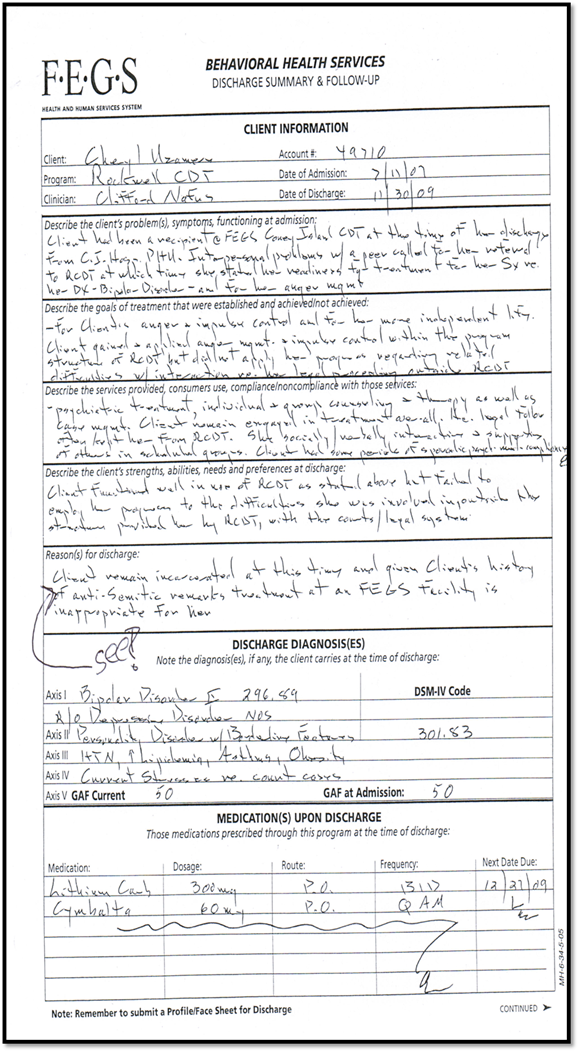 F·E·G·S
HEALTH AND HUMAN SERVICES SYSTEM
BEHAVIORAL HEALTH SERVICES
DISCHARGE SUMMARY & FOLLOW-UP
CLIENT INFORMATION
Client: Cheryl Account #: 49710
Program: Rockwell CDT Date of Admission: 7/11/07
Clinician: Clifford Date of Discharge: 11/30/09
Describe the client's problem(s), symptoms, functioning at admission:
Client had been a recipient @ FEGS Coney Island CDT at the time of her discharge
from C.I. Hosp. Interpersonal problems w/ a peer called for her referral
to RCDT at which time she stated her readiness for treatment for her Sx re.
her DX-Bipolar Disorder-and for her anger mgmt
Describe the goals of treatment that were established and achieved/not achieved:
-For Client's anger & impulse control and for her more independent living.
Client gained & applied anger mgmt. & impulse control within the program
structure of RCDT but did not apply her progress regarding related
difficulties w/ interaction re. her legal proceeding outside RCDT
Describe the services provided, consumers use, compliance/noncompliance with those services:
-psychiatric treatment, individual & group counseling & therapy as well as
case mgmt. Client remain engaged in treatment overall, the legal
kept her from RCDT. She socially/verbally interactive & supportive
of others in scheduled groups. Client had some periods of sporadic
Describe the client's strengths, abilities, needs and preferences at discharge:
Client functioned well in use of RCDT as stated above but failed to
employ her progress to the difficulties she was involved in outside the
structure provided her by RCDT, with the courts/legal system
Reason(s) for discharge:
Client remain incarcerated at this time and given Client's history
of anti-Semitic remarks treatment at an FEGS Facility is
inappropriate for her
see!
DISCHARGE DIAGNOSIS(ES)
Note the diagnosis(es), if any, the client carries at the time of discharge:
Axis I Bipolar Disorder II 296.89 DSM-IV Code
R/O Depressive Disorder NOS
Axis II Personality Disorder w/ Borderline Features 301.83
Axis III HTN, ↑lipidemia, Asthma, Obesity
Axis IV Current Stressors re. court cases
Axis V GAF Current 50 GAF at Admission: 50
MEDICATION(S) UPON DISCHARGE
Those medications prescribed through this program at the time of discharge:
Medication: Dosage: Route: Frequency: Next Date Due:
Lithium Carb 300mg P.O. BID 12/27/09
Cymbalta 60mg P.O. Q AM
MH-6-34-5-05
Note: Remember to submit a Profile/Face Sheet for Discharge CONTINUED ➤